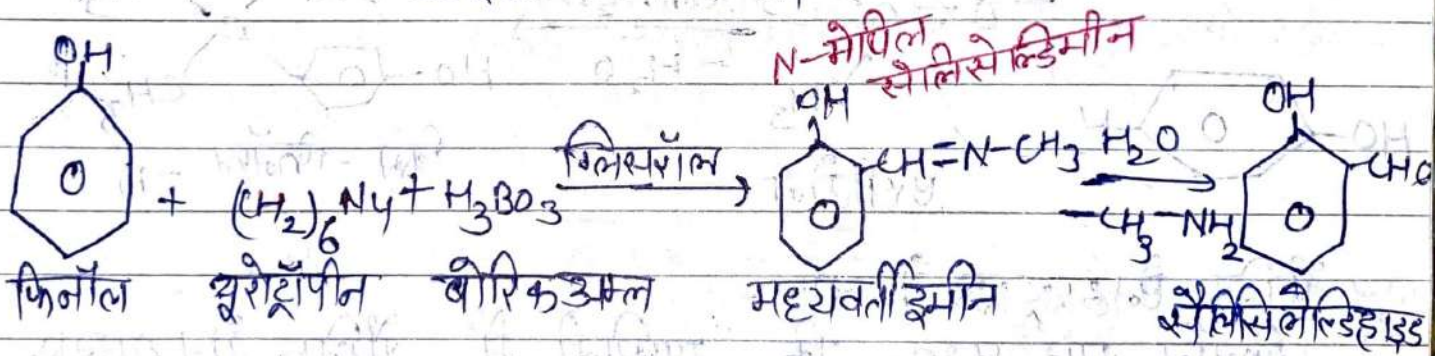 N-मेथिल
सैलिसेल्डिमीन
OH OH OH
+ (CH2)6 N4 + H3BO3 ग्लिसरॉल CH=N-CH3 H2O CHO
-CH3-NH2
फिनॉल यूरोट्रॉपीन बोरिक अम्ल मध्यवर्ती इमीन सैलिसिलैल्डिहाइड